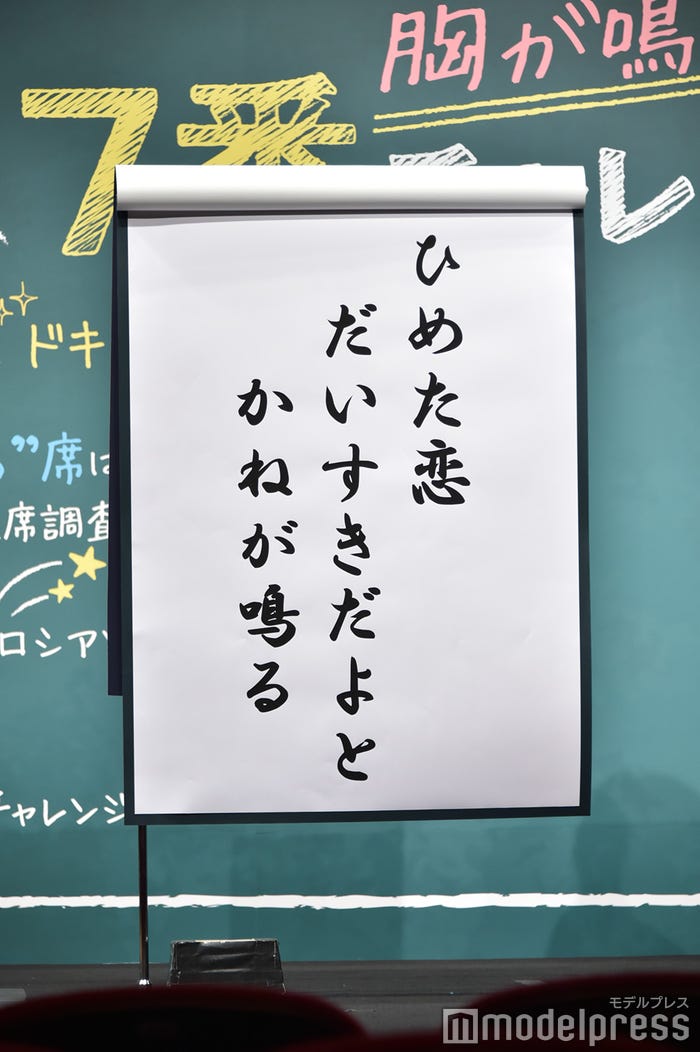 胸が鳴
7番
レ
ドキ
”席は
席調査
ロシア
チャレンジ
ひめた恋
だいすきだよと
かねが鳴る
モデルプレス
modelpress